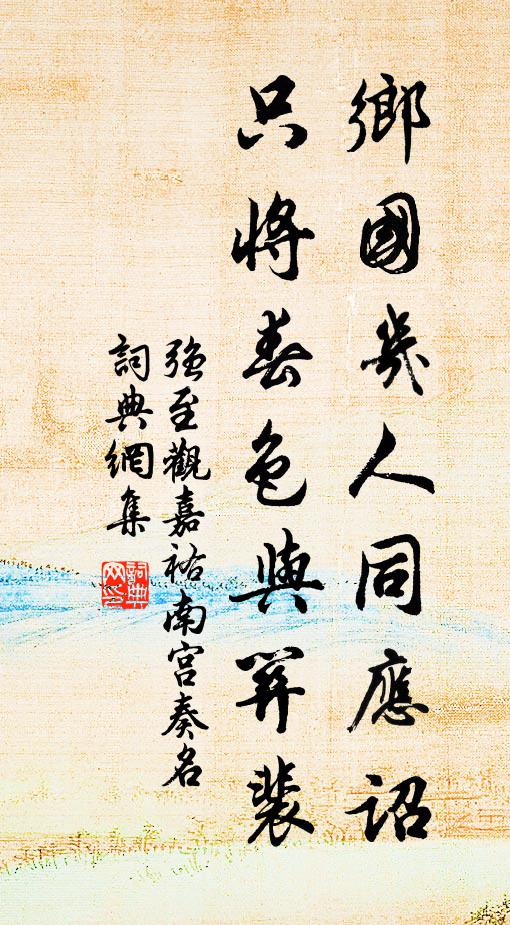 鄉國幾人同應詔
只將春色與羿裴
強至觀嘉祐南宮奏名
詞典網集
詞典
网印